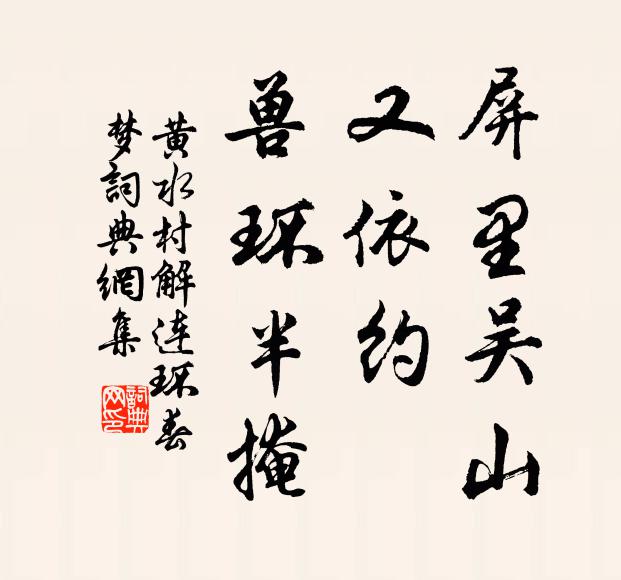 屏里吴山
又依约
兽环半掩
黄水村解连环春
梦词典網集
詞典
网印